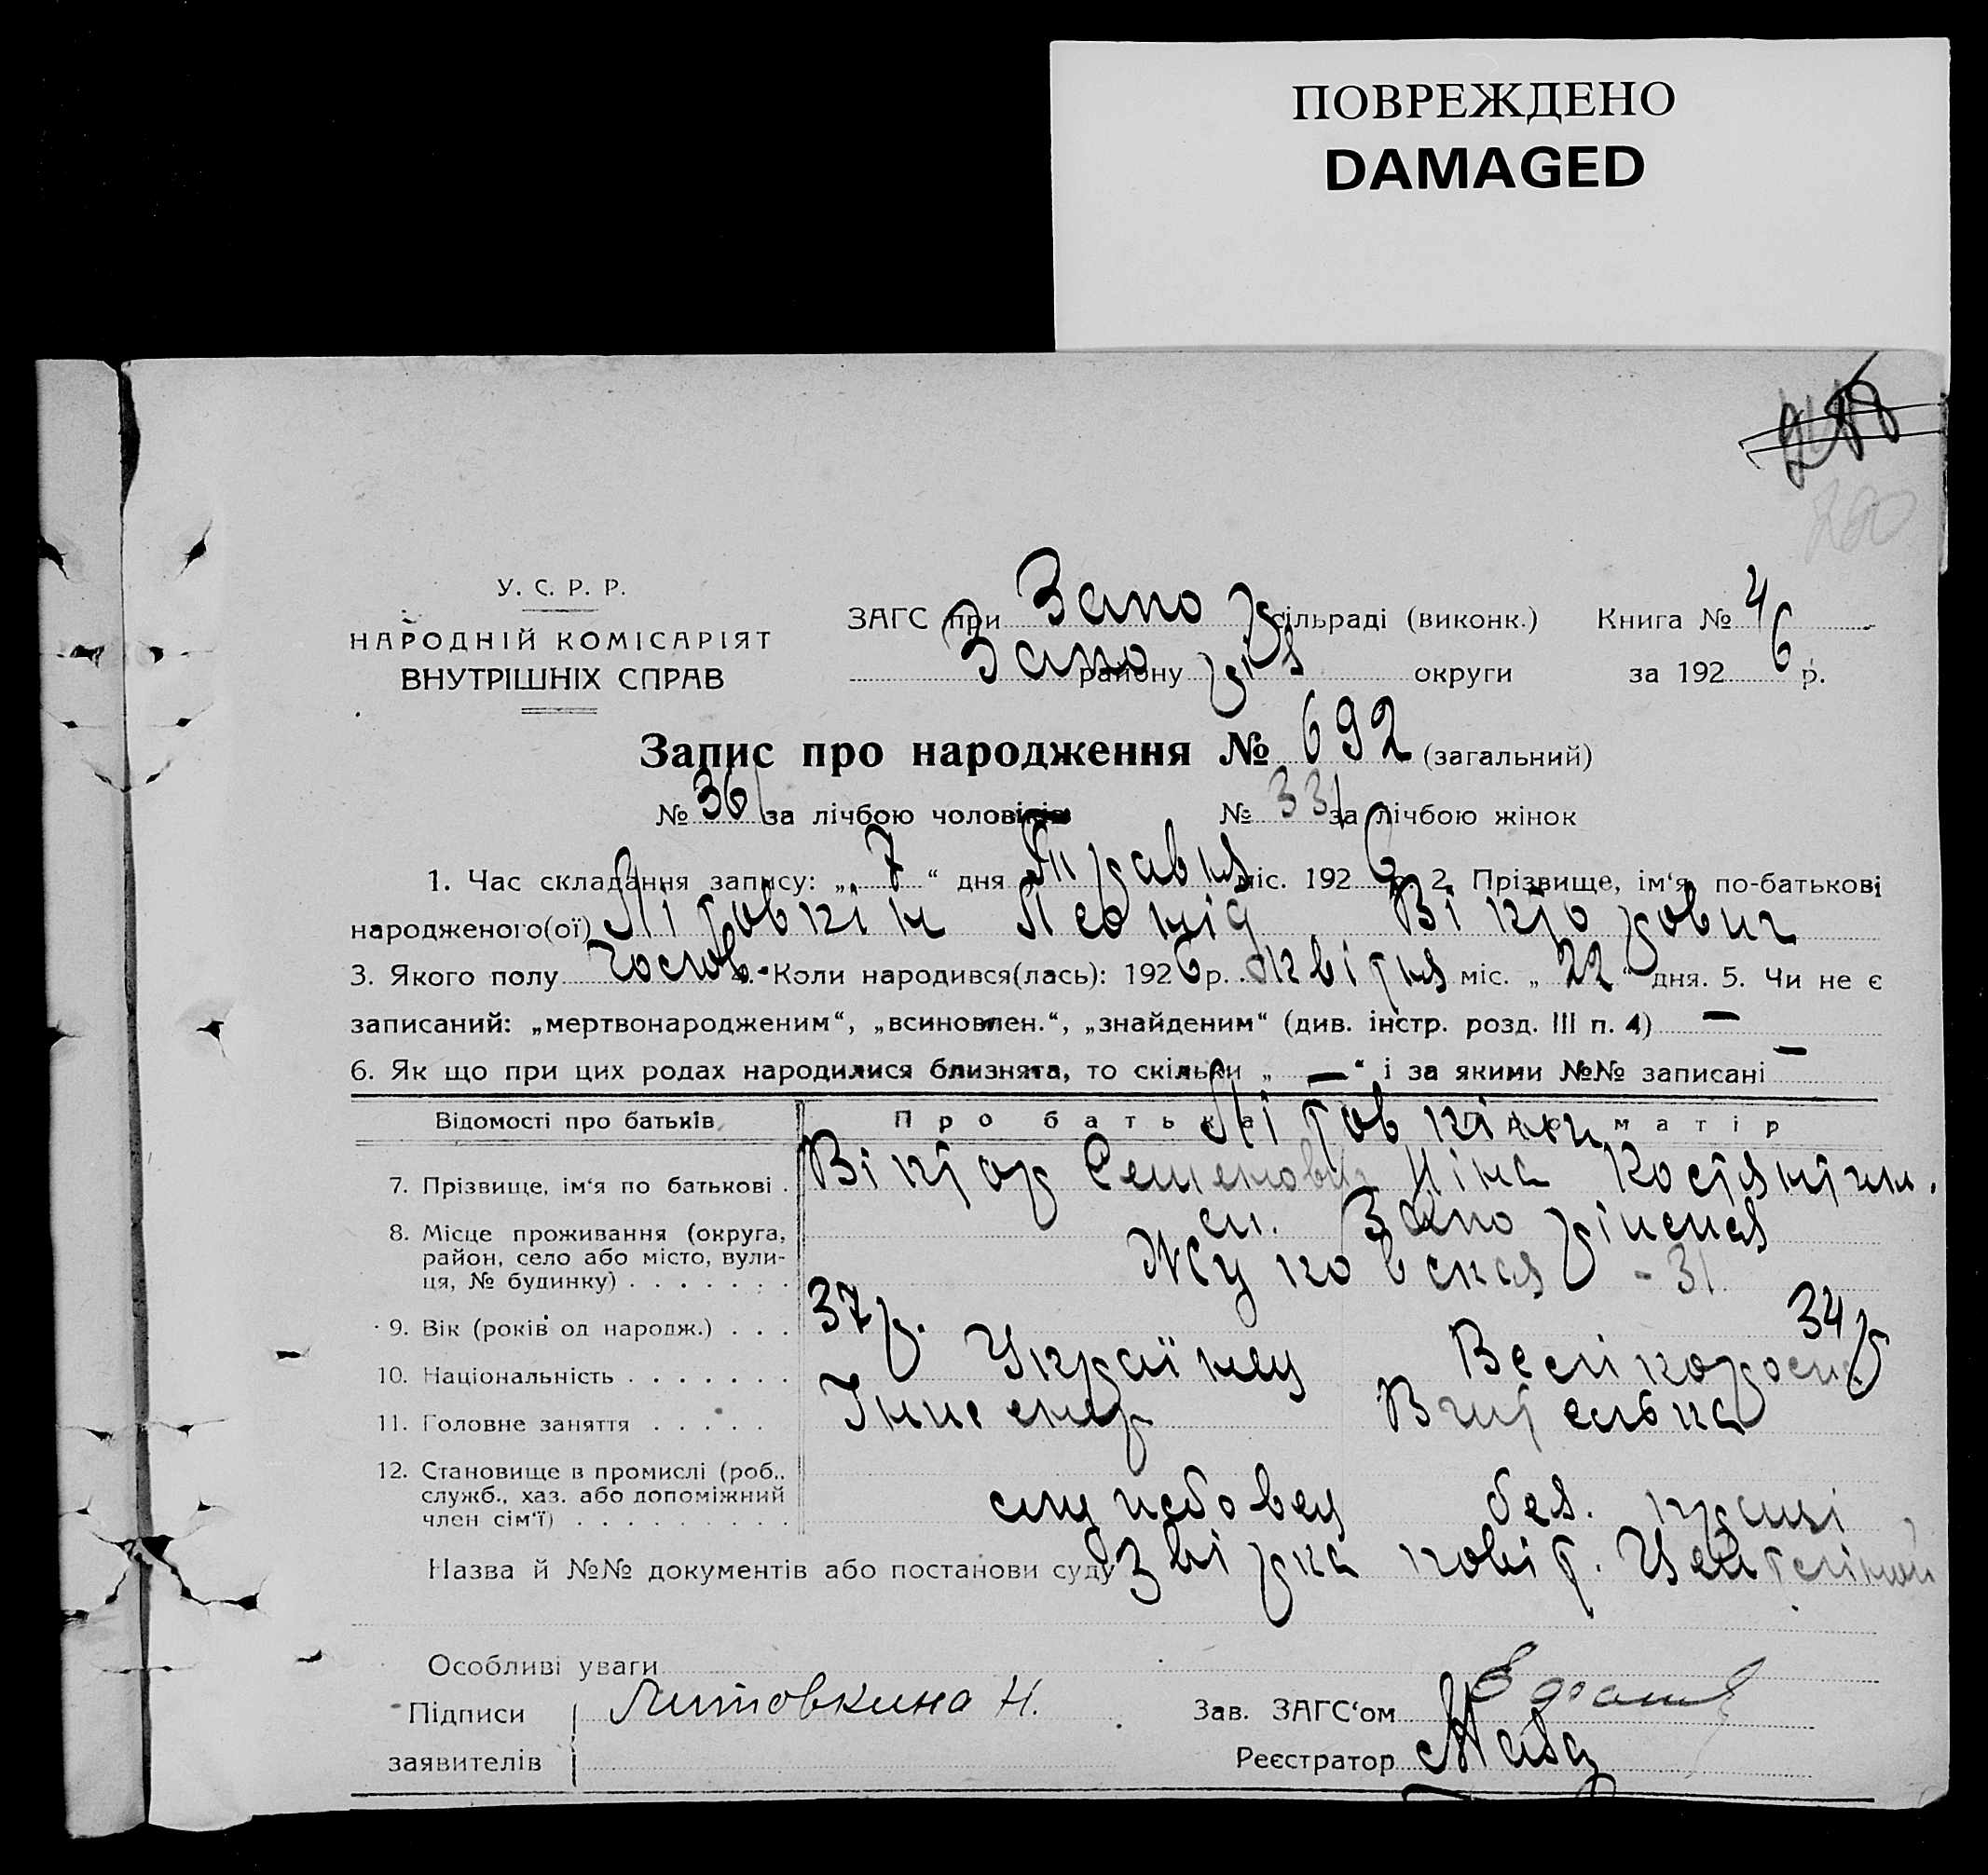 ПОВРЕЖДЕНО
DAMAGED
260
У. С. Р. Р.
НАРОДНІЙ КОМІСАРІЯТ
ВНУТРІШНІХ СПРАВ
ЗАГС при Запор сільраді (виконк.) Книга № 4
Запо району різ округи за 1926 р.
Запис про народження № 692 (загальний)
№ 361 за лічбою чоловіків № 331 за лічбою жінок
1. Час складання запису: „7“ дня Травня міс. 1926 2. Прізвище, ім‘я, по-батькові
народженого(ої) Літовкін Леонід Вікторович
3. Якого полу Чолов. 4. Коли народився(лась): 1926 р. квітня міс. „22“ дня. 5. Чи не є
записаний: „мертвонародженим“, „всиновлен.“, „знайденим“ (див. інстр. розд. III п. 4) —
6. Як що при цих родах народилися близнята, то скільки „—“ і за якими №№ записані —
Відомості про батьків Про батька Про матір
Літовкіни
7. Прізвище, ім‘я по батькові . Віктор Семенович Ніна Костянтин.
8. Місце проживання (округа, район, село або місто, вулиця, № будинку) . . . . . . . Запоріжжя
Жуковская - 31
9. Вік (років од народж.) . . . 37 р. 34 р
10. Національність . . . . . . . Українец Великорос.
11. Головне заняття . . . . . Інженер Вчителька
12. Становище в промислі (роб., служб., хаз. або допоміжний член сім‘ї) . . . . . . . . . службовец без. праці
Назва й №№ документів або постанови суду Звірка
Особливі уваги
Підписи Литовкина Н. Зав. ЗАГС‘ом
заявителів Реєстратор